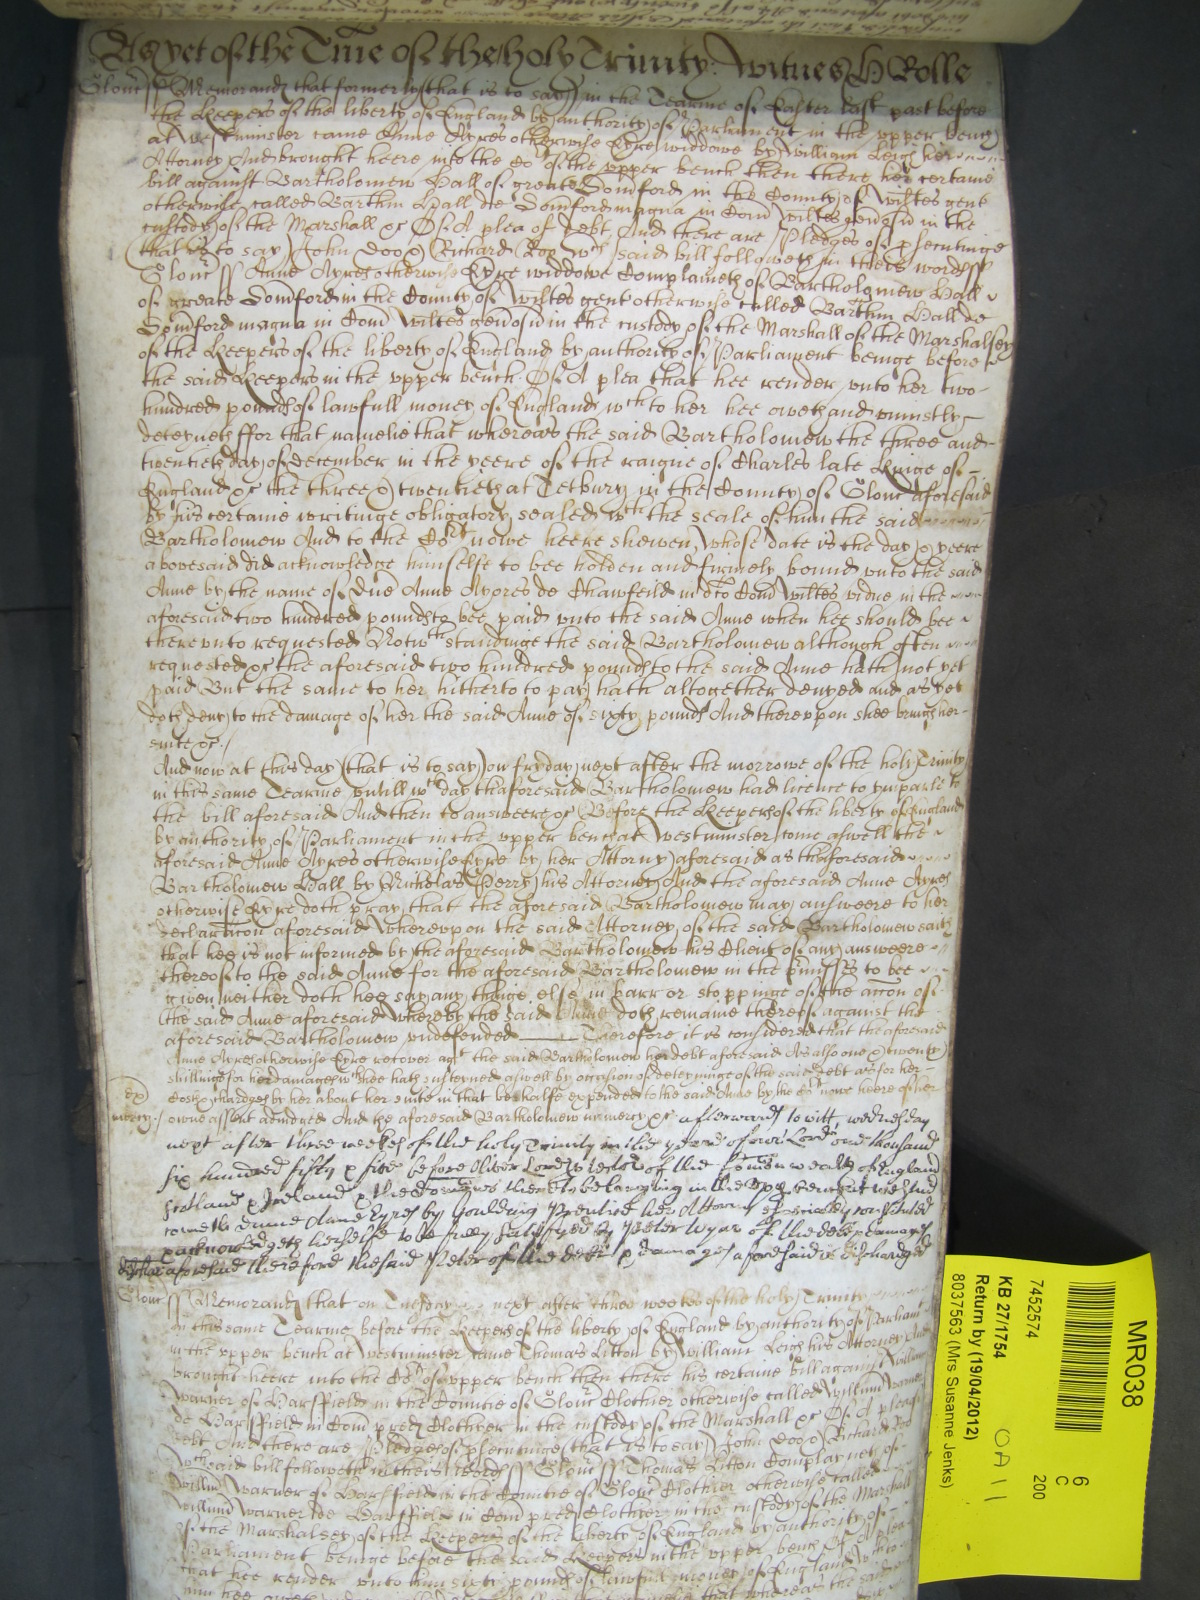 As yet of the Tme of the holy Trinity. Witnes H Rolle
Glouc ss Memorand that formerly (that is to say) in the Tearme of Easter last past before
the Keepers of the liberty of England by authority of Parliament in the vpper bench
at Westminster came Anne Ayres otherwise Eyre widdowe by William Leigh her
Attorney And brought heere into the Cort of the vpper bench then there her certaine
bill against Bartholomew Hall of greate Somford in the County of Wiltes gent
otherwise called Barthm Hall de Somford magna in Com Wiltes genosu in the
custody of the Marshall &c Of A plea of debt And there are Pledges of psecutinge
(that is to say) John Doo & Richard Roo wch said bill followeth in theis wordes ss
Glouc ss Anne Ayres otherwise Eyre widdowe Complaineth of Bartholomew Hall
of greate Somford in the County of Wiltes gent otherwise called Barthm Hall de
Somford magna in Com Wiltes genosu in the custody of the Marshall of the Marshalsey
of the Keepers of the liberty of England by authority of Parliament beinge before
the said Keepers in the vpper bench Of A plea that hee render vnto her two
hundred pounds of lawfull money of England wch to her hee oweth and vniustly
deteyneth ffor that namelie that whereas the said Bartholomew the three and
twentieth day of December in the yeere of the raigne of Charles late Kinge of
England &c the three & twentieth at Tetbury in the County of Glouc aforesaid
by his certaine writinge obligatory sealed wth the seale of him the said
Bartholomew And to the Cort nowe heere shewen, whose date is the day & yeere
abovesaid did acknowledge himselfe to bee holden and firmely bound vnto the said
Anne by the name of Anne Ayres de Chawfeild in Com Wiltes vidue in the
aforesaid two hundred pounds to bee paid vnto the said Anne when hee should bee
therevnto requested Notwthstandinge the said Bartholomew although often
requested &c the aforesaid two hundred pounds to the said Anne hath not yet
paid But the same to her hitherto to pay hath altogether denyed and as yet
doth deny to the damage of her the said Anne of sixty pounds And therevpon shee bringes her
suite &c /
And now at this day (that is to say) on fryday next after the morrowe of the holy Trinity
in this same Tearme vntill wch day thaforesaid Bartholomew had licence to ymparle to
the bill aforesaid And then to answeere &c Before the Keepers of the liberty of England
by authority of Parliament in the vpper bench at Westminster come aswell the
aforesaid Anne Ayres otherwise Eyre by her Attorny aforesaid as thaforesaid
Bartholomew Hall by Nicholas Perry his Attorney And the aforesaid Anne Ayres
otherwise Eyre doth pray that the aforesaid Bartholomew may answeere to her
declaracon aforesaid Wherevpon the said Attorney of the said Bartholomew saith
that hee is not informed by the aforesaid Bartholomew his Client of any answeere
thereof to the said Anne for the aforesaid Bartholomew in the pmisses to bee
given neither doth hee say any thinge else in barr or stoppinge of the accon of
the said Anne aforesaid whereby the said Anne doth remaine thereof against the
aforesaid Bartholomew vndefended Therefore it is considered that the aforesaid
Anne Ayres otherwise Eyre recover agt the said Bartholomew her debt aforesaid As also one & twenty
shillings for her damages wch shee hath susteyned aswell by occasion of deteyninge of the said debt as for her
costs & chardges by her about her suite in that behalfe expended to the said Anne by the Cort nowe heere of her
mercy owne assent adiudged And the aforesaid Bartholomew in mercy &c afterwards to witt, wednesday
next after three weekes of the holy Trinity in the yeare of our Lord one thousand
six hundred fifty & before Oliver Lord Protector of the Comonwealth of England
Scotland & Ireland & the Dominions thereto belonging in the vpper bench at
came the Anne Eyres by her Attorny
& acknowledgeth herselfe to be fully satisfyed by Peter of the debt & damages
aforesaid therefore the said Peter of the debt & damages aforesaid is discharged
Glouc ss Memorand that on Tuesday next after three weekes of the holy Trinity
in this same Tearme before the Keepers of the liberty of England by authority of Parliamt
in the vpper bench at Westminster came Thomas Litton by William Leigh his Attorney And
brought heere into the Cort of vpper bench then there his certaine bill against William
Warner of Harffield in the Countie of Glouc Clothier otherwise called Willum Warner
de Harffield in Com pred Clothier in the custody of the Marshall &c Of A plea of
debt And there are Pledges of psecutinge (that is to say) John Doo & Richard Roo
wch said bill followeth in theis words ss Glouc ss Thomas Litton Complayneth of
Willm Warner of Harffield in the Countie of Glouc Clothier otherwise called
Willum Warner de Harffield in Com pred Clothier in the custody of the Marshall
of the Marshalsey of the Keepers of the liberty of England by authority of
Parliament beinge before the said Keepers in the vpper bench Of A plea
that hee render vnto him sixty pounds of lawfull money of England
MR038
6
C
200
7452574
KB 27/1754
Return by (19/04/2012)
8037563 (Mrs Susanne Jenks)
OA 11